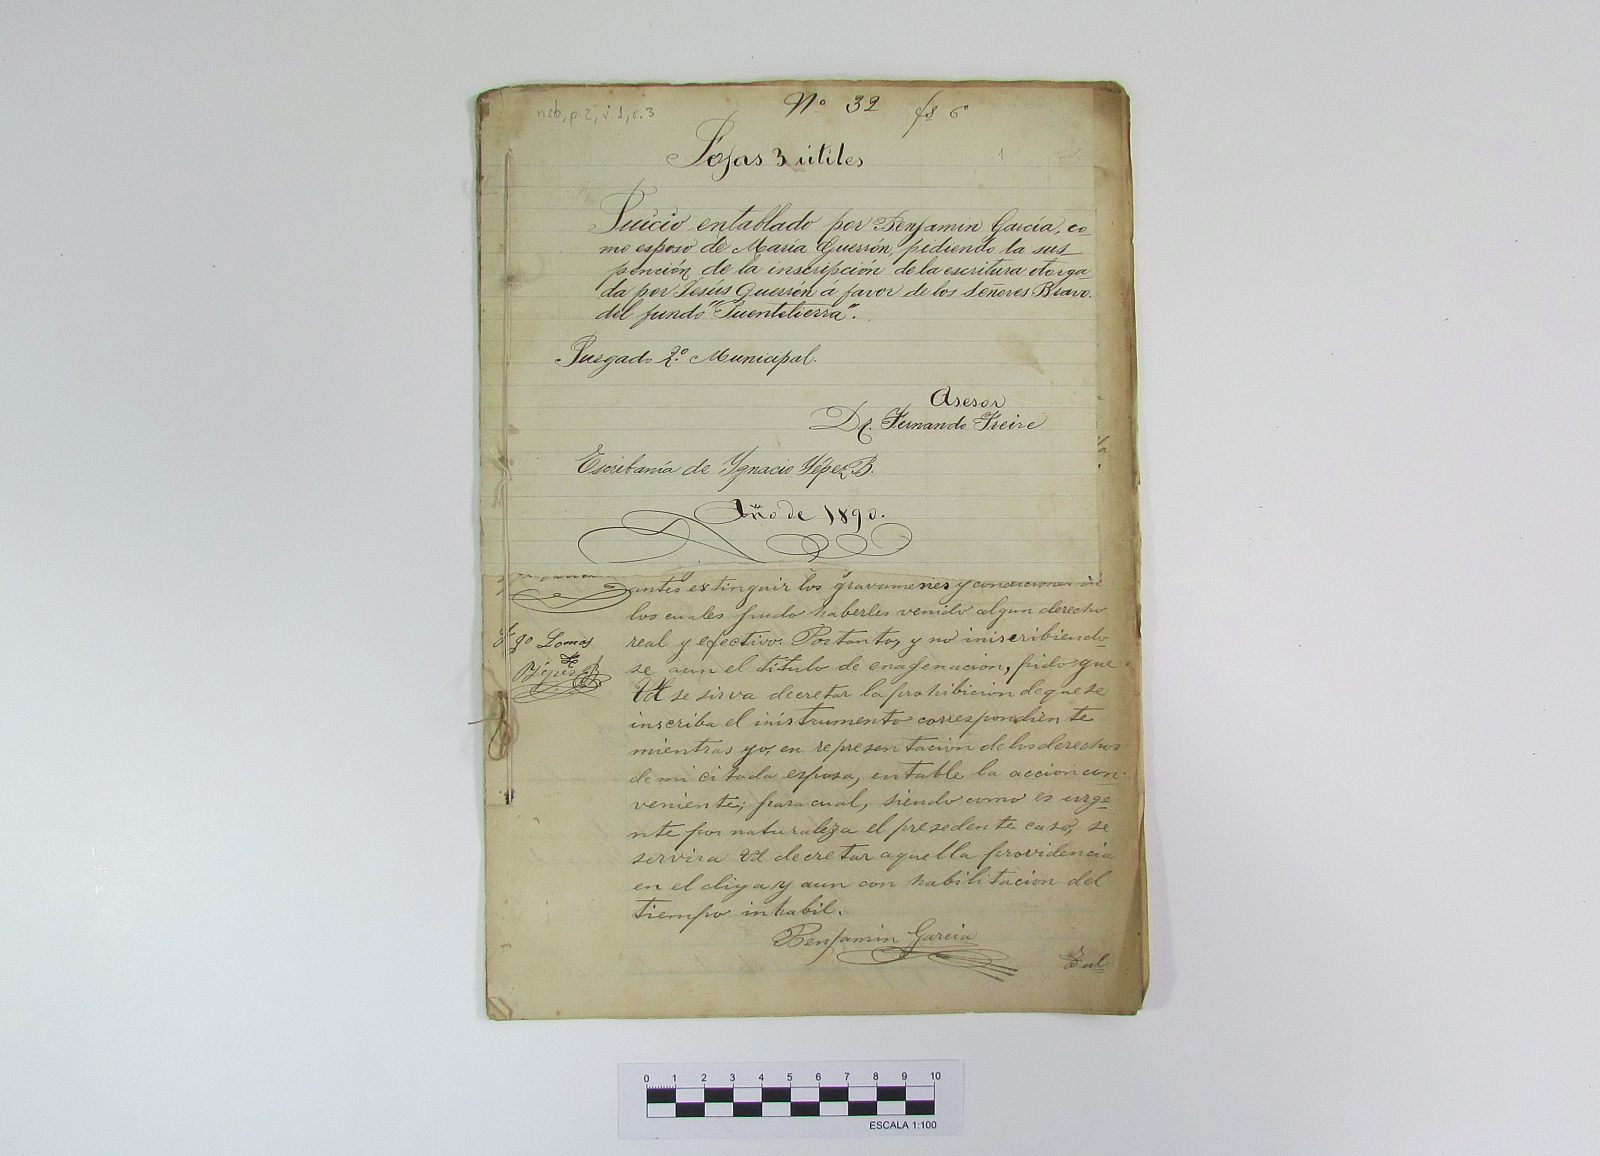 nsb, p.2, v.1, c.3
Nº 32 fs 6
1
Fojas 3 útiles
Juicio entablado por Benjamin García, co
mo esposo de María Guerrón, pidiendo la sus_
pención de la inscripción de la escritura otorga_
da por Jesús Guerrón á favor de los Señores Bravo.
del fundo "Puentetierra".
Juzgado 2º. Municipal.
Asesor
Dr. Fernando Freire
Escribanía de Ygnacio Yépez B.
Año de 1890.
antes extinguir los gravamenes y condiciones
los cuales pudo haberles venido algun derecho
real y efectivo. Portanto, y no inscribiendo
se aun el titulo de enagenacion, pido que
Ud se sirva decretar la prohibicion de que se
inscriba el instrumento correspondiente
mientras yo, en representacion de los derechos
de mi citada esposa, entable la accion con-
veniente; para cual, siendo como es urge
nte por naturaleza el presedente caso, se
servira Ud decretar aquella providencia
en el diya y aun con habilitacion del
tiempo inhabil.
Benjamin Garcia
go Lomas
Yépez B
0 1 2 3 4 5 6 7 8 9 10
ESCALA 1:100